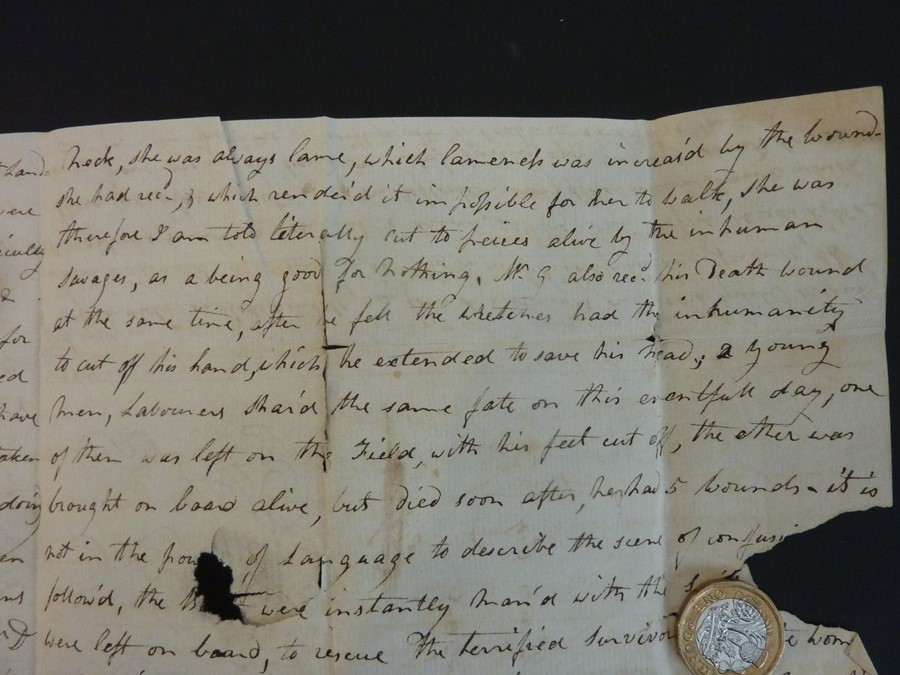 neck, she was always lame, which lameness was increas'd by the wound
she had recd, & which render'd it impossible for her to walk, she was
therefore I am told literally cut to peices alive by the inhuman
Savages, as a being good for nothing. Mr. G also recd. his Death wound
at the same time, after he fell the wretches had the inhumanity
to cut off his hand, which he extended to save his head; 2 young
men, Labourers shar'd the same fate on this eventfull day, one
of them was left on the Field, with his feet cut off, the other was
brought on board alive, but died soon after, he had 5 wounds - it is
not in the of Language to describe the scene of
follow'd, the were instantly man'd with the
were left on board, to rescue the terrified